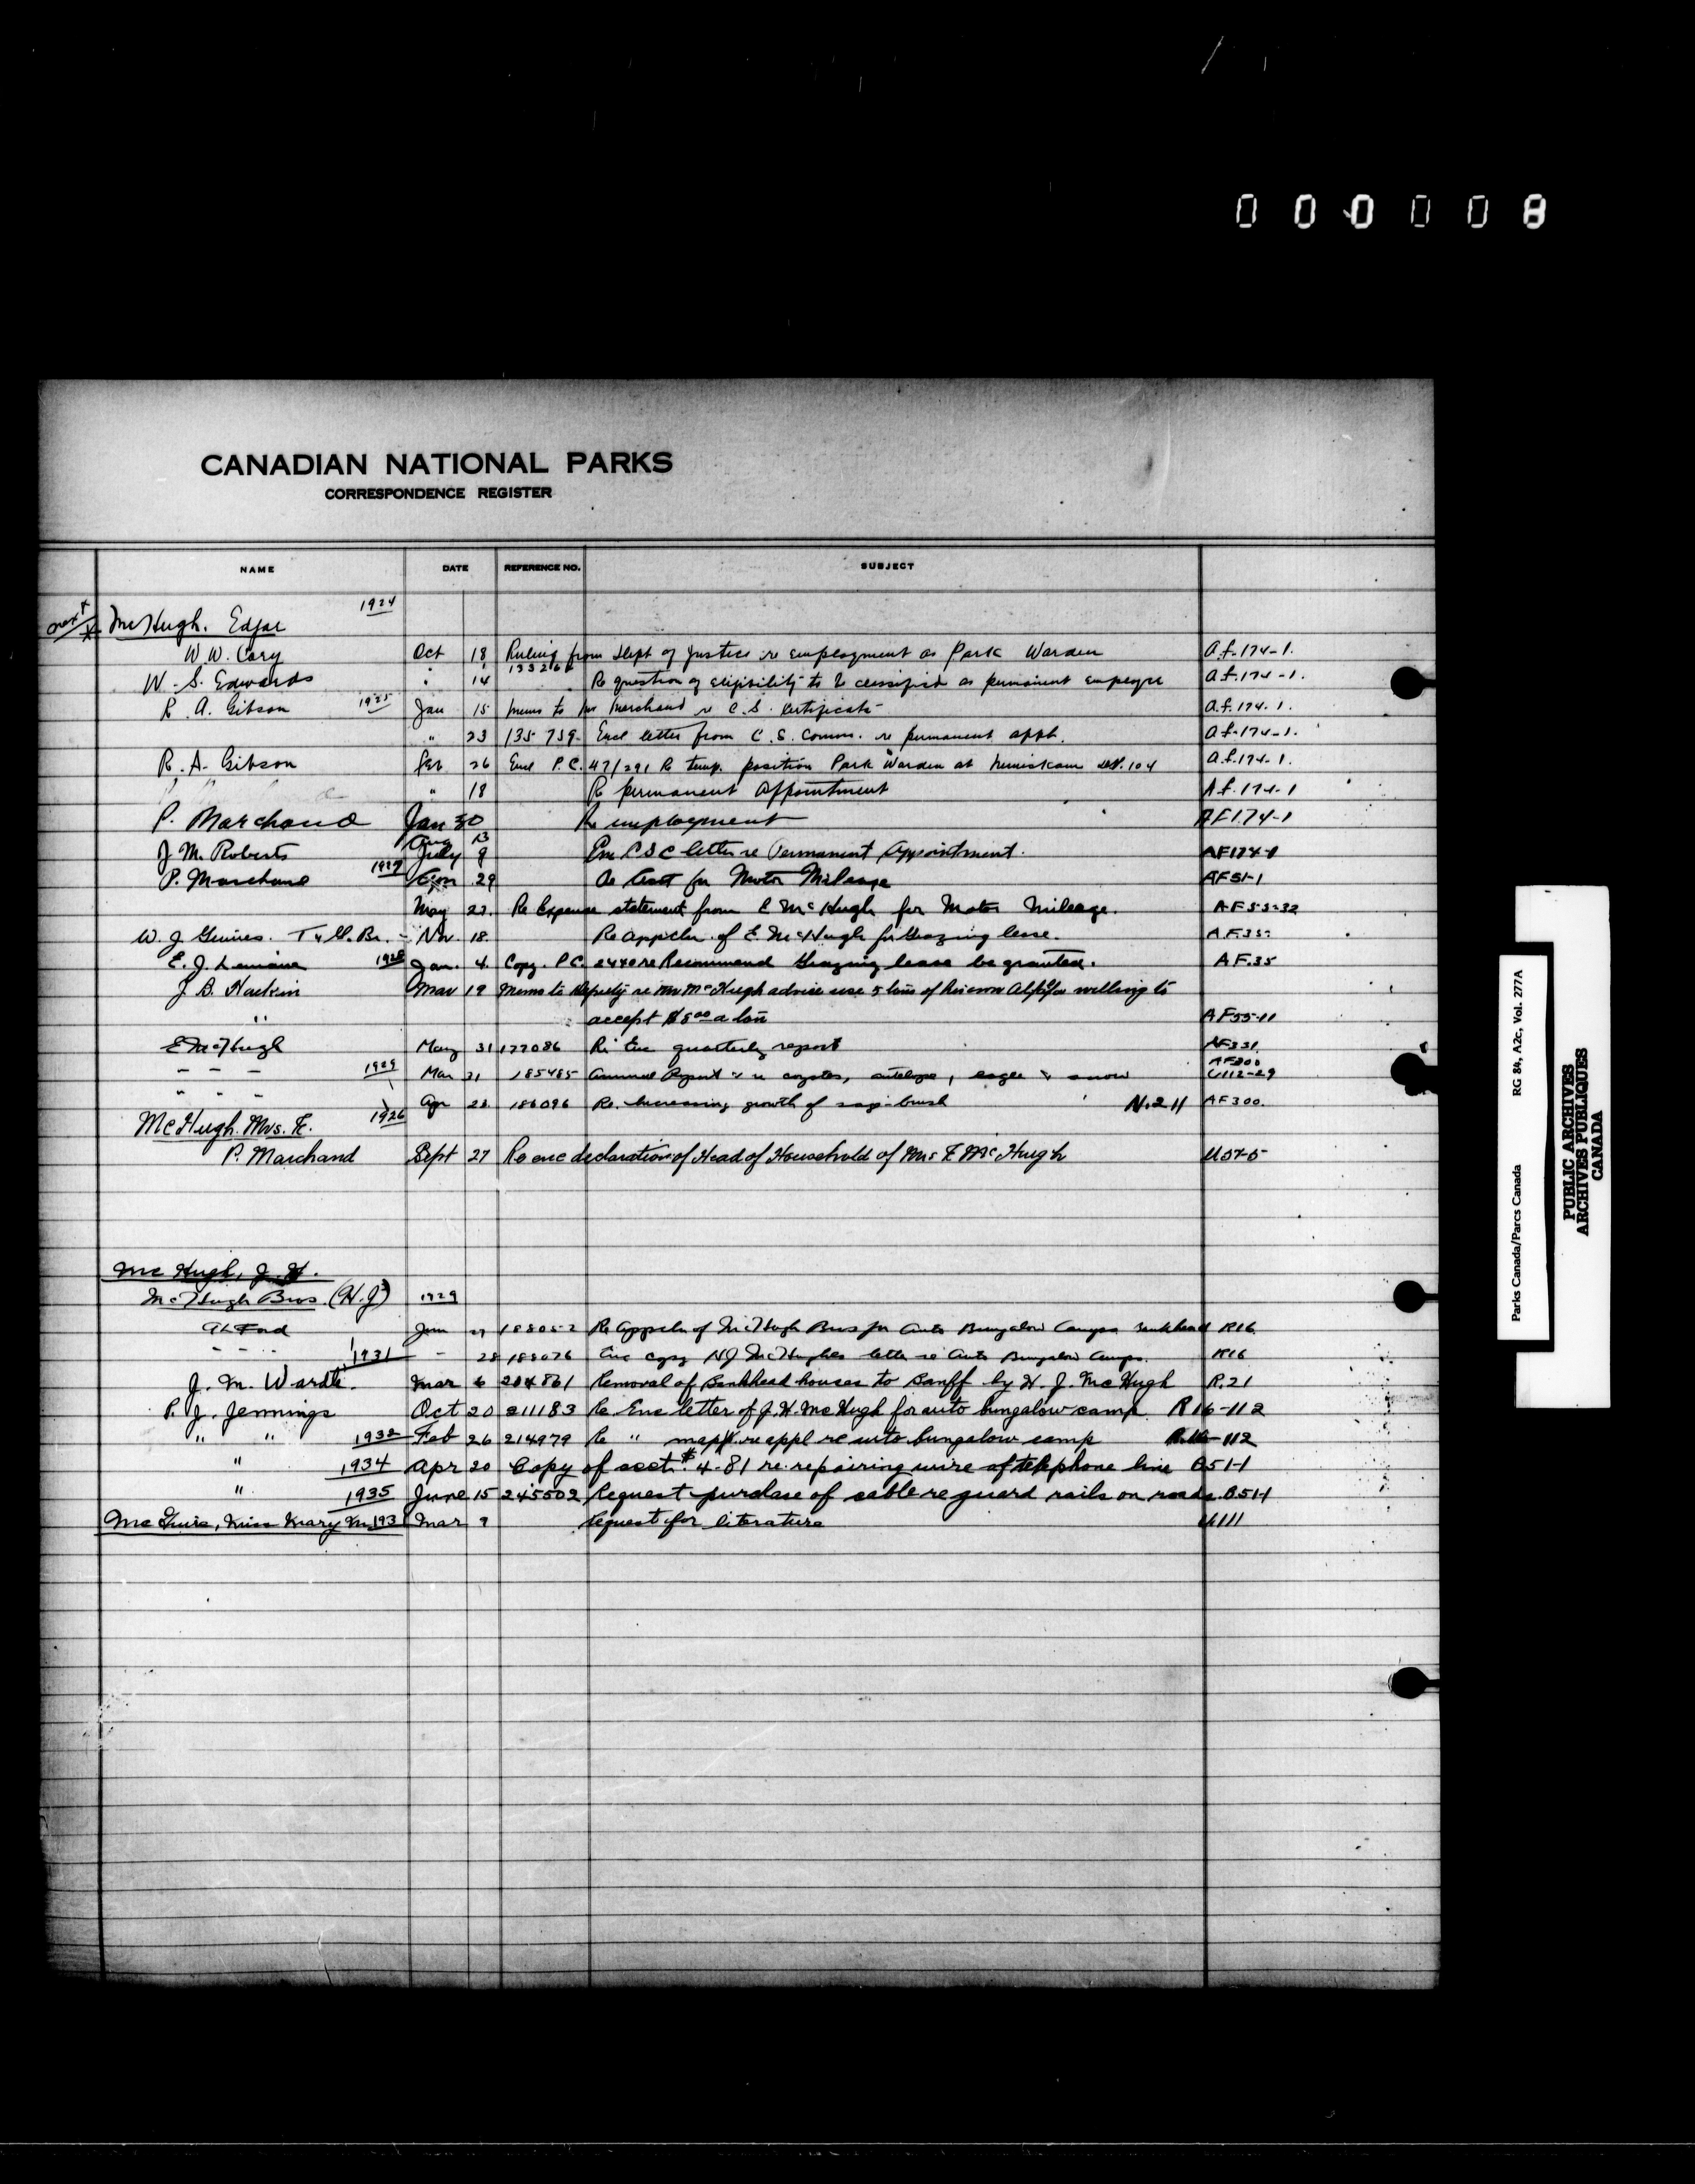 000008
CANADIAN NATIONAL PARKS
CORRESPONDENCE REGISTER
NAME DATE REFERENCE NO. SUBJECT
next
McHugh. Edgar 1924
W. W. Cory Oct 18 Ruling from Dept of Justice re employment as Park Warden a.f.174-1.
W. S. Edwards " 14 133266 Re question of eligibility to be classified as permanent employee a.f.174-1.
R. A. Gibson 1925 Jan 15 Memo to Mr Marchand re C.S. Certificate a.f.174-1.
" 23 135739 Encl letter from C.S. Comm. re permanent appt. a.f.174-1.
R. A. Gibson Feb 26 Encl P.C. 47/291 Re temp. position Park Warden at Nemiskam a.f.174-1.
" 18 Re permanent appointment A.f.174-1
P. Marchand Jan 30 Re employment AF174-1
Aug 13
J. M. Roberts July 9 Enc C S C letter re Permanent Appointment. AF174-1
P. Marchand 1927 29 Re Acct for Motor Mileage AF51-1
May 23. Re Expense statement from E McHugh for Motor Mileage.
W. J. T & G. Br. - Nov. 18. Re Appcln. of E. McHugh for Grazing lease. A.F.35.
E. J. Lemaire 1928 Jan. 4. Copy. P.C. 2440 re Recommend Grazing lease be granted. AF.35
J. B. Harkin Mar 19 Memo to Deputy re Mr McHugh advice use 5 tons of his own Alfalfa willing to
" accept $8.00 a ton AF55-11
E McHugh May 31 177086 Re Enc quarterly report AF331
" " " 1929 Mar 31 185485 Annual Report & re coyotes, antelope, eagle & snow AF300 U112-29
" " " Apr 23. 186096 Re. Increasing growth of sage-brush N.211 AF300.
McHugh. Mrs. E. 1926
P. Marchand Sept 27 Re enc declaration of Head of Household of Mrs E McHugh U57-5
McHugh, J. H.
McHugh Bros. (H.J) 1929
Jun 27 188052 Re Appcln of McHugh Bros for Auto Bungalow Camps Bankhead R16.
" " " 28 188076 Enc copy H J McHughes letter re Auto Bungalow Camps. R16
1931
J. M. Wardle. Mar 6 204861 Removal of Bankhead houses to Banff by H. J. McHugh R.21
P. J. Jennings Oct 20 211183 Re Enc letter of J. H. McHugh for auto bungalow camp R16-112
" " 1932 Feb 26 214979 Re " map re appl re auto bungalow camp R.16-112
" 1934 Apr 20 Copy of acct. $4-81 re repairing wire of telephone line B51-1
" 1935 June 15 245502 Request purchase of cable re guard rails on roads. B51-1
Miss Mary M. 193 Mar 9 Request for literature U111
Parks Canada/Parcs Canada RG 84, A2c, Vol. 277A
PUBLIC ARCHIVES
ARCHIVES PUBLIQUES
CANADA